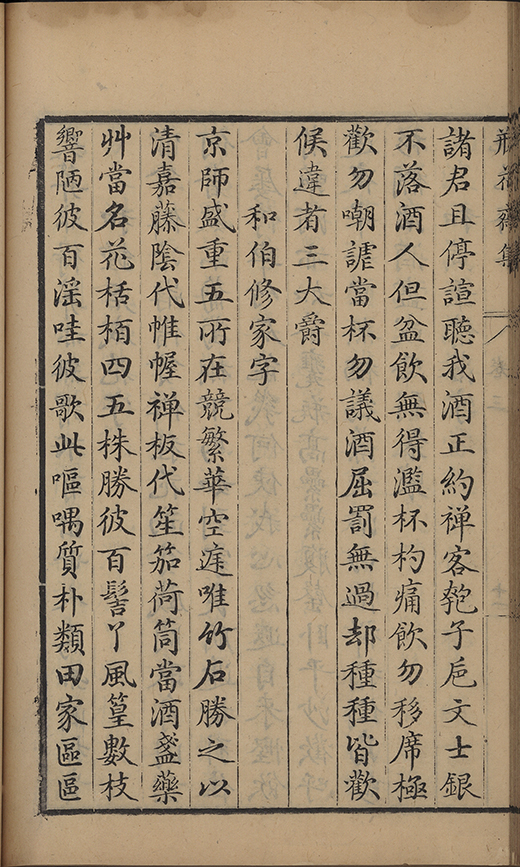 瓶花齋集 卷三 十一
諸君且停諠聽我酒正約禪客匏子卮文士銀
不落酒人但盆飲無得濫杯杓痛飲勿移席極
歡勿嘲謔當杯勿議酒屈罰無過却種種皆歡
候違者三大爵
和伯修家字
京師盛重五所在競繁華空庭唯竹石勝之以
清嘉藤陰代帷幄禅板代笙笳荷筒當酒盞藥
艸當名花栝栢四五株勝彼百髻丫風篁數枝
響陋彼百淫哇彼歌此嘔喁質朴類田家區區